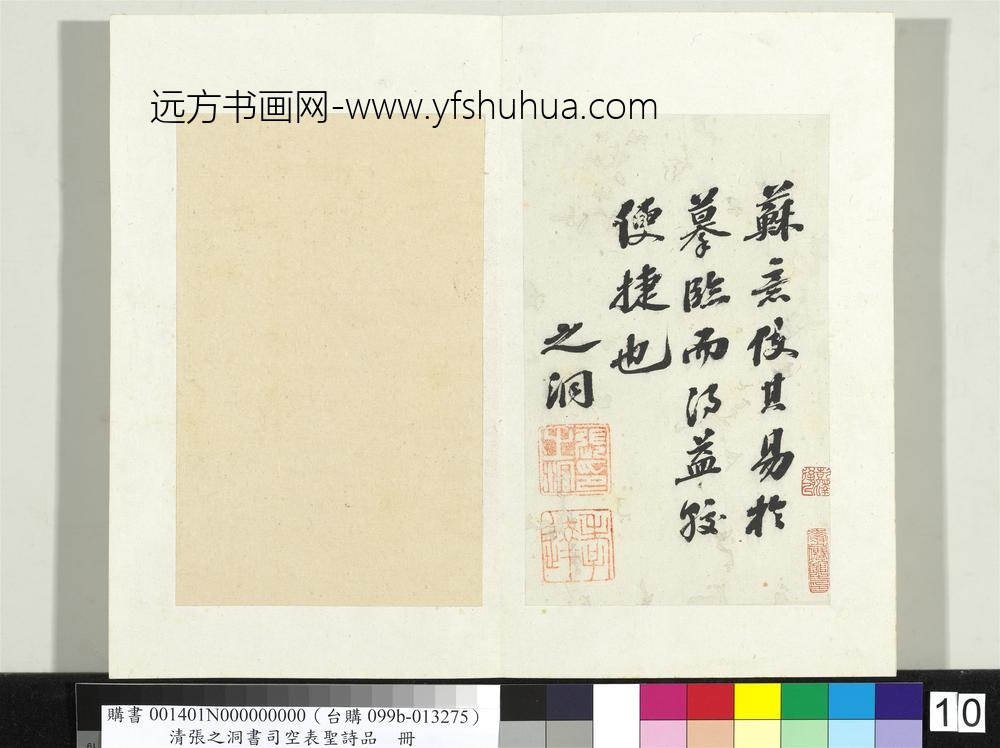 远方书画网-www.yfshuhua.com
蘇意俾其易於
摹臨而得益較
便捷也
之洞
10
購書 001401N000000000（台購 099b-013275）
清張之洞書司空表聖詩品　冊